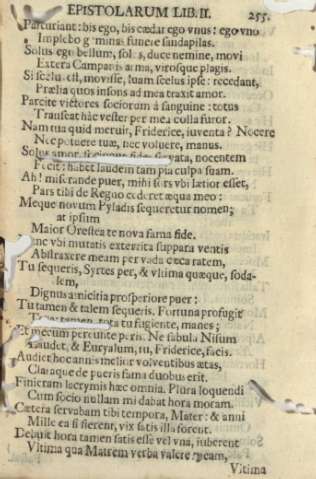 EPISTOLARUM LIB. II. 255.
Parturiant: bis ego, bis cædar ego vnus: ego vno
Implebo geminas funere sandapilas.
Solus ego bellum, solus, duce nemine, movi
Extera Campanis arma, virosque plagis.
Si scelus est, movisse, luam scelus ipse: recedant,
Prælia quos insons ad mea traxit amor.
Parcite victores sociorum à sanguine: totus
Transeat hàc vester per mea colla furor.
Nam tua quid meruit, Friderice, iuventa? Nocere
Nec potuere tuæ, nec voluere, manus.
Solus amor, nocentem
Fecit: habet laudem tam pia culpa suam.
Ah! miserande puer, mihi sors vbi lætior esset,
Pars tibi de Regno cederet æqua meo:
Meque novum Pyladis sequeretur nomen;
at ipsum
Maior Orestea te nova fama side.
vbi mutatis exterrita suppara ventis
Abstraxere meam per vada cæca ratem,
Tu sequeris, Syrtes per, & vltima quæque, soda-
lem,
Dignus amicitia prosperiore puer:
Tu tamen & talem sequeris. Fortuna profugit
tota tu fugiente, manes;
Et mecum pereunte peris. Ne fabula Nisum
Laudet, & Euryalum, tu, Friderice, facis.
Audiet hoc annis melior volventibus ætas,
Claraque de pueris fama duobus erit.
Finieram lacrymis hæc omnia. Plura loquendi
Cum socio nullam mi dabat hora moram.
Cætera servabam tibi tempora, Mater: & anni
Mille ea si fierent, vix satis illa forent.
Debuit hora tamen satis esse vel vna, iuberent
Vltima qua Matrem verba valere meam,
Vltima